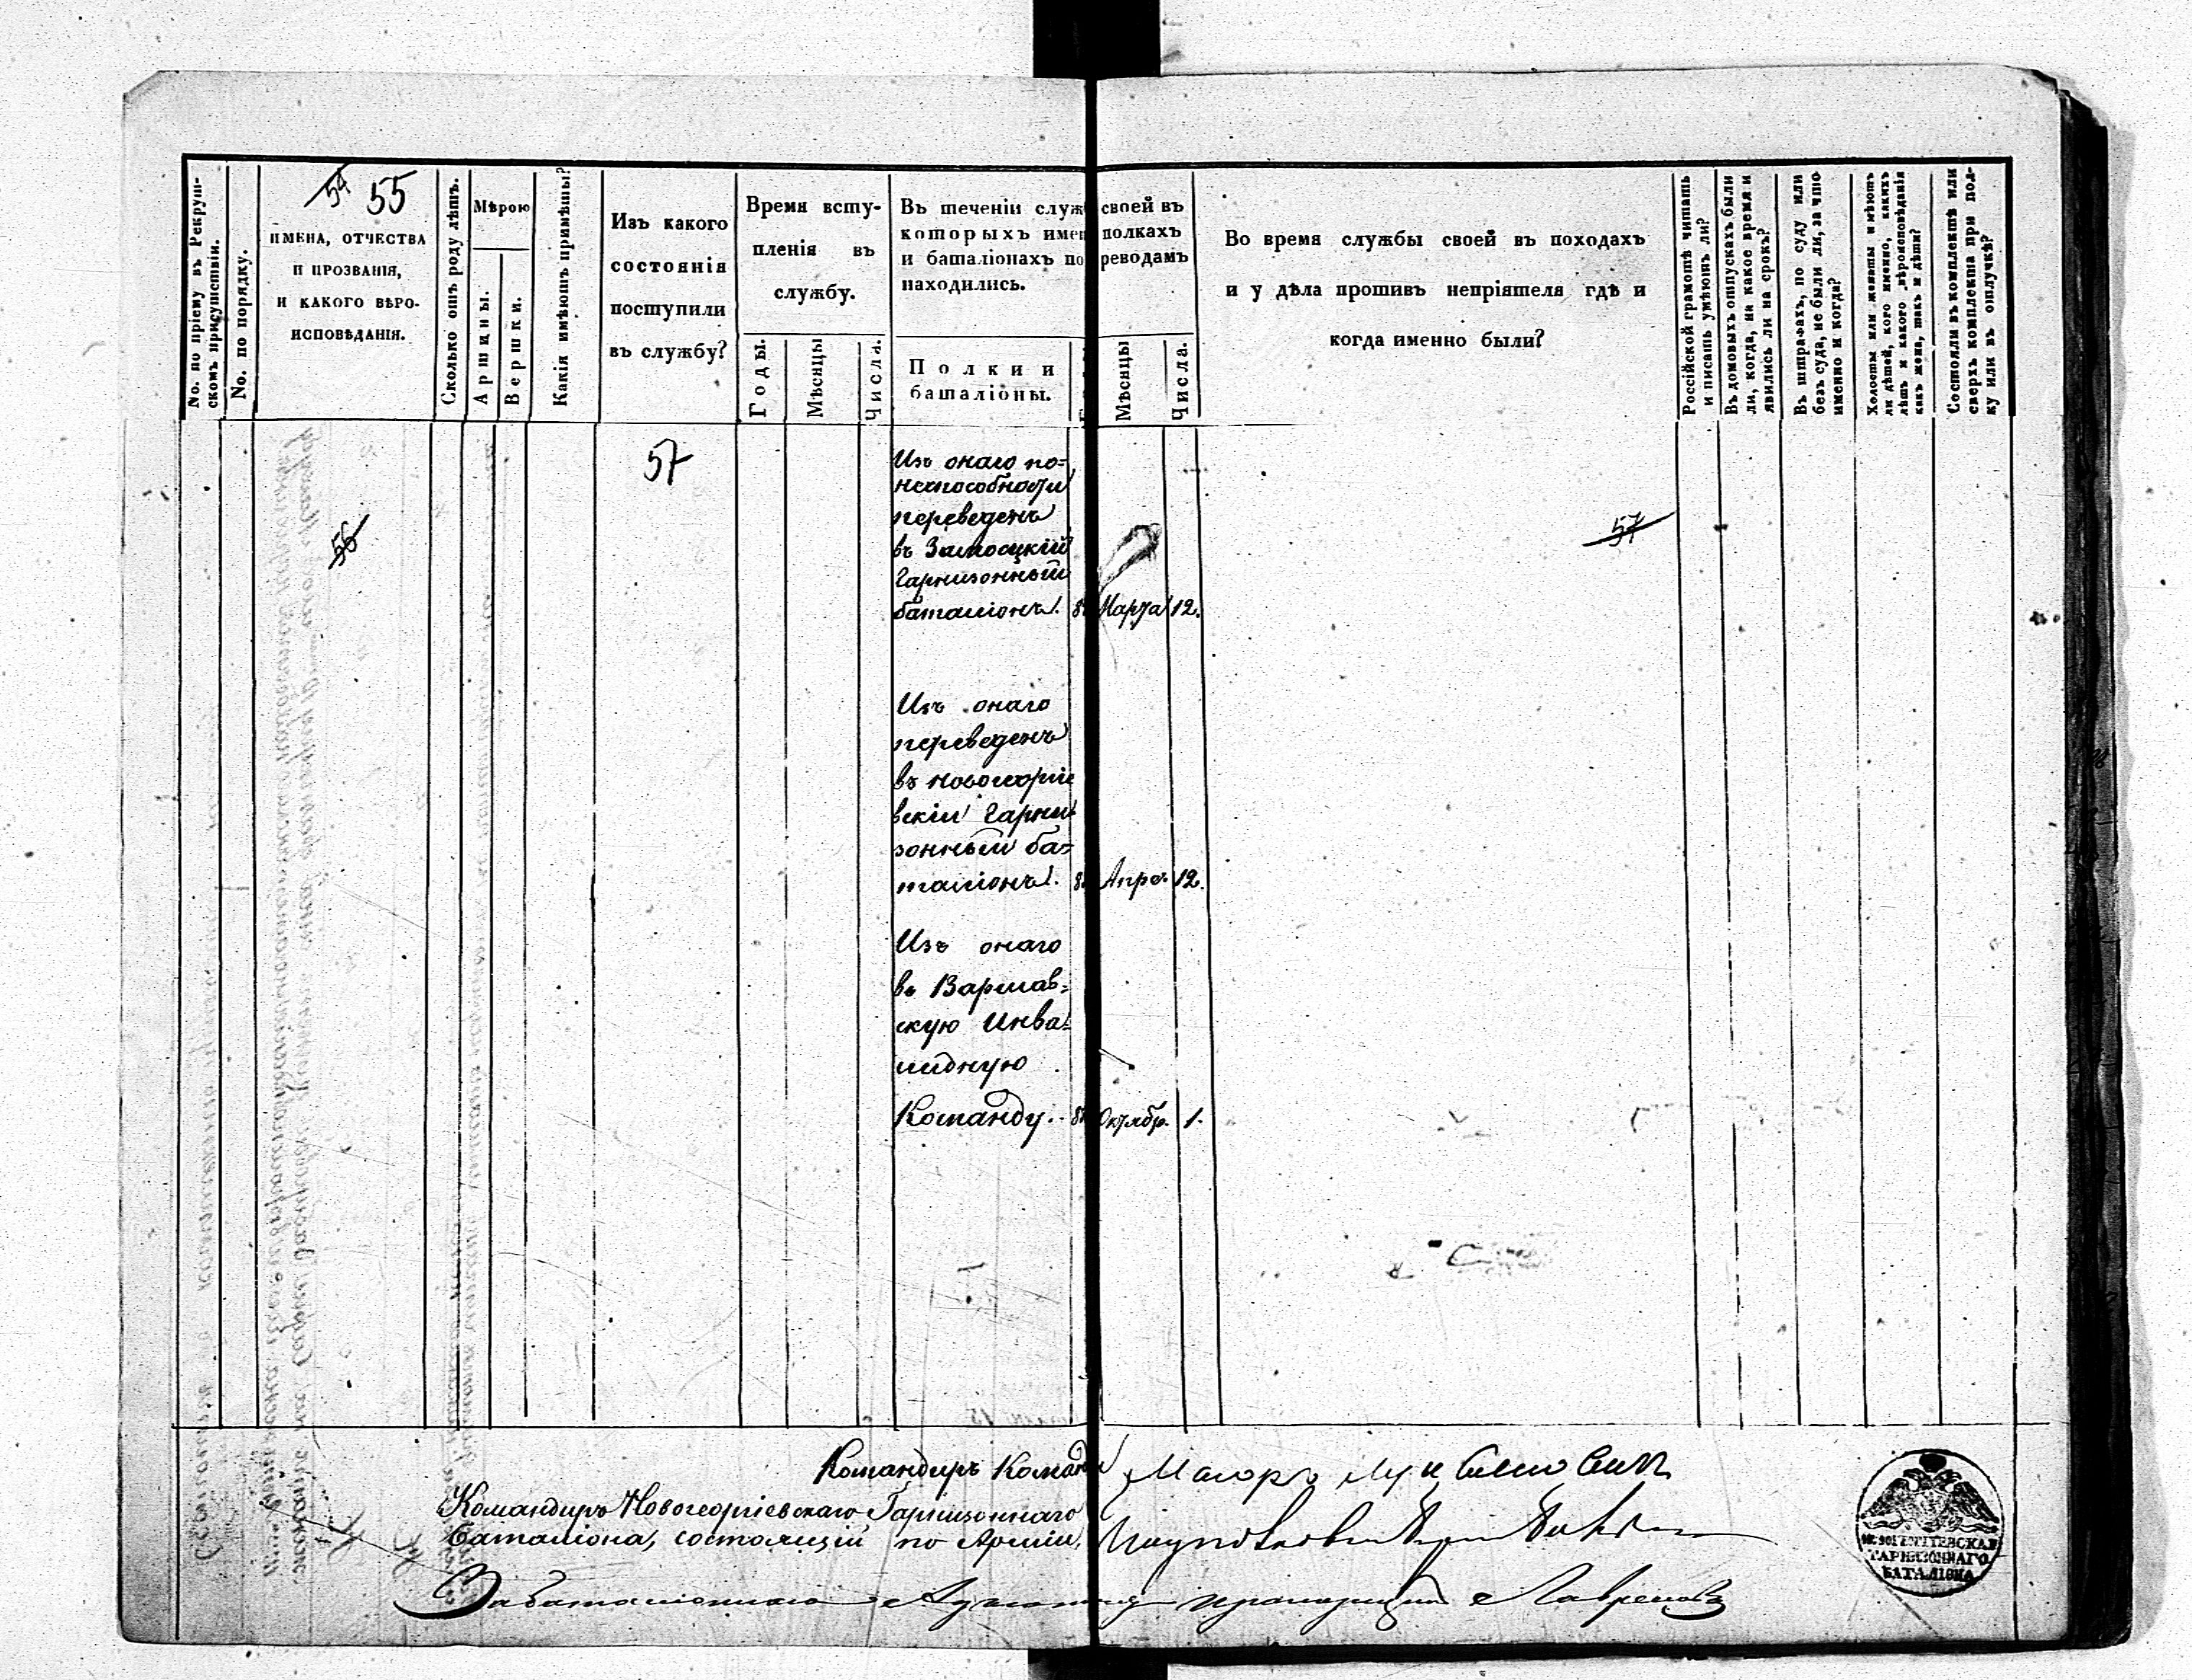 54 55
No. по пріему въ Рекрут-
скомъ присутствіи.
No. по порядку.
ИМЕНА, ОТЧЕСТВА
И ПРОЗВАНІЯ,
И КАКОГО ВѢРО-
ИСПОВѢДАНІЯ.
Сколько отъ роду лѣтъ.
Мѣрою
Аршины.
Вершки.
Какія имѣютъ примѣты?
Изъ какого
состоянія
поступили
въ службу?
Время всту-
пленія въ
службу.
Годы.
Мѣсяцы
Числа.
Въ теченіи служ своей въ
которыхъ имен полкахъ
и баталіонахъ по реводамъ
находились.
Полки и
баталіоны.
Мѣсяцы
Числа.
Во время службы своей въ походахъ
и у дѣла противъ непріятеля гдѣ и
когда именно были?
Россійской грамотѣ читать
и писать умѣютъ ли?
Въ домовыхъ отпускахъ были
ли, когда, на какое время и
явились ли на срокъ?
Въ штрафахъ, по суду или
безъ суда, не были ли, за что
именно и когда?
Холосты или женаты и мѣютъ
ли дѣтей, кого именно, какихъ
лѣтъ и какого вѣроисповѣданія
какъ жена, такъ и дѣти?
Состояли въ комплектѣ или
сверхъ комплекта при пол-
ку или въ отлучкѣ?
57
56
57
Изъ онаго по-
неспособности
переведенъ
въ Замосцкій
Гарнизонный
баталіонъ. Марта 12.
Изъ онаго
переведенъ
въ новогеоргіе
вскій Гарни
зонный ба-
таліонъ. Апре. 12.
Изъ онаго
въ Варшав-
скую Инва-
лидную
Команду. Октябр. 1.
Командиръ Команды Маіоръ
Командиръ Новогеоргіевскаго Гарнизоннаго
Баталіона, состоящій по Арміи,
За баталіоннаго Адъютанта прапорщикъ
НОВОГЕОРГІЕВСКАГО
ГАРНИЗОННАГО
БАТАЛІОНА